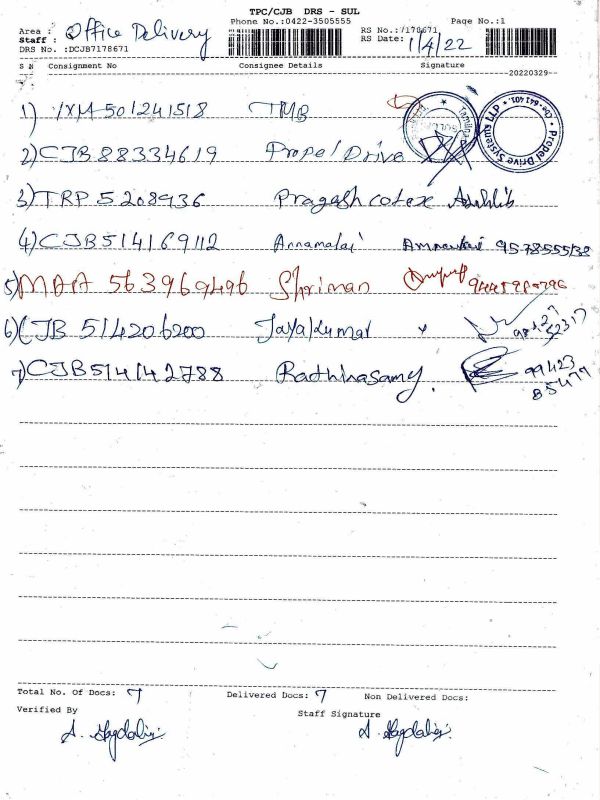 TPC/CJB DRS - SUL
Phone No.:0422-3505555 Page No.:1
Area : Office Delivery RS No.:7178671
Staff : RS Date: 1/4/22
DRS No. :DCJB7178671
S N Consignment No Consignee Details Signature
20220329
1) IXM 501241518 TMB
2) CJB 88334619 Propel Drive
Propel Drive Systems LLP * Cbe - 641 401. *
3) TRP 5208936 Pragash cotex
4) CJB 514169112 Annamalai
5) MAA 563969496 Shriman
6) CJB 514206200 Jayakumar
7) CJB 514142788 Radhinasamy. 99423
85479
Total No. Of Docs: 7 Delivered Docs: 7 Non Delivered Docs:
Verified By Staff Signature